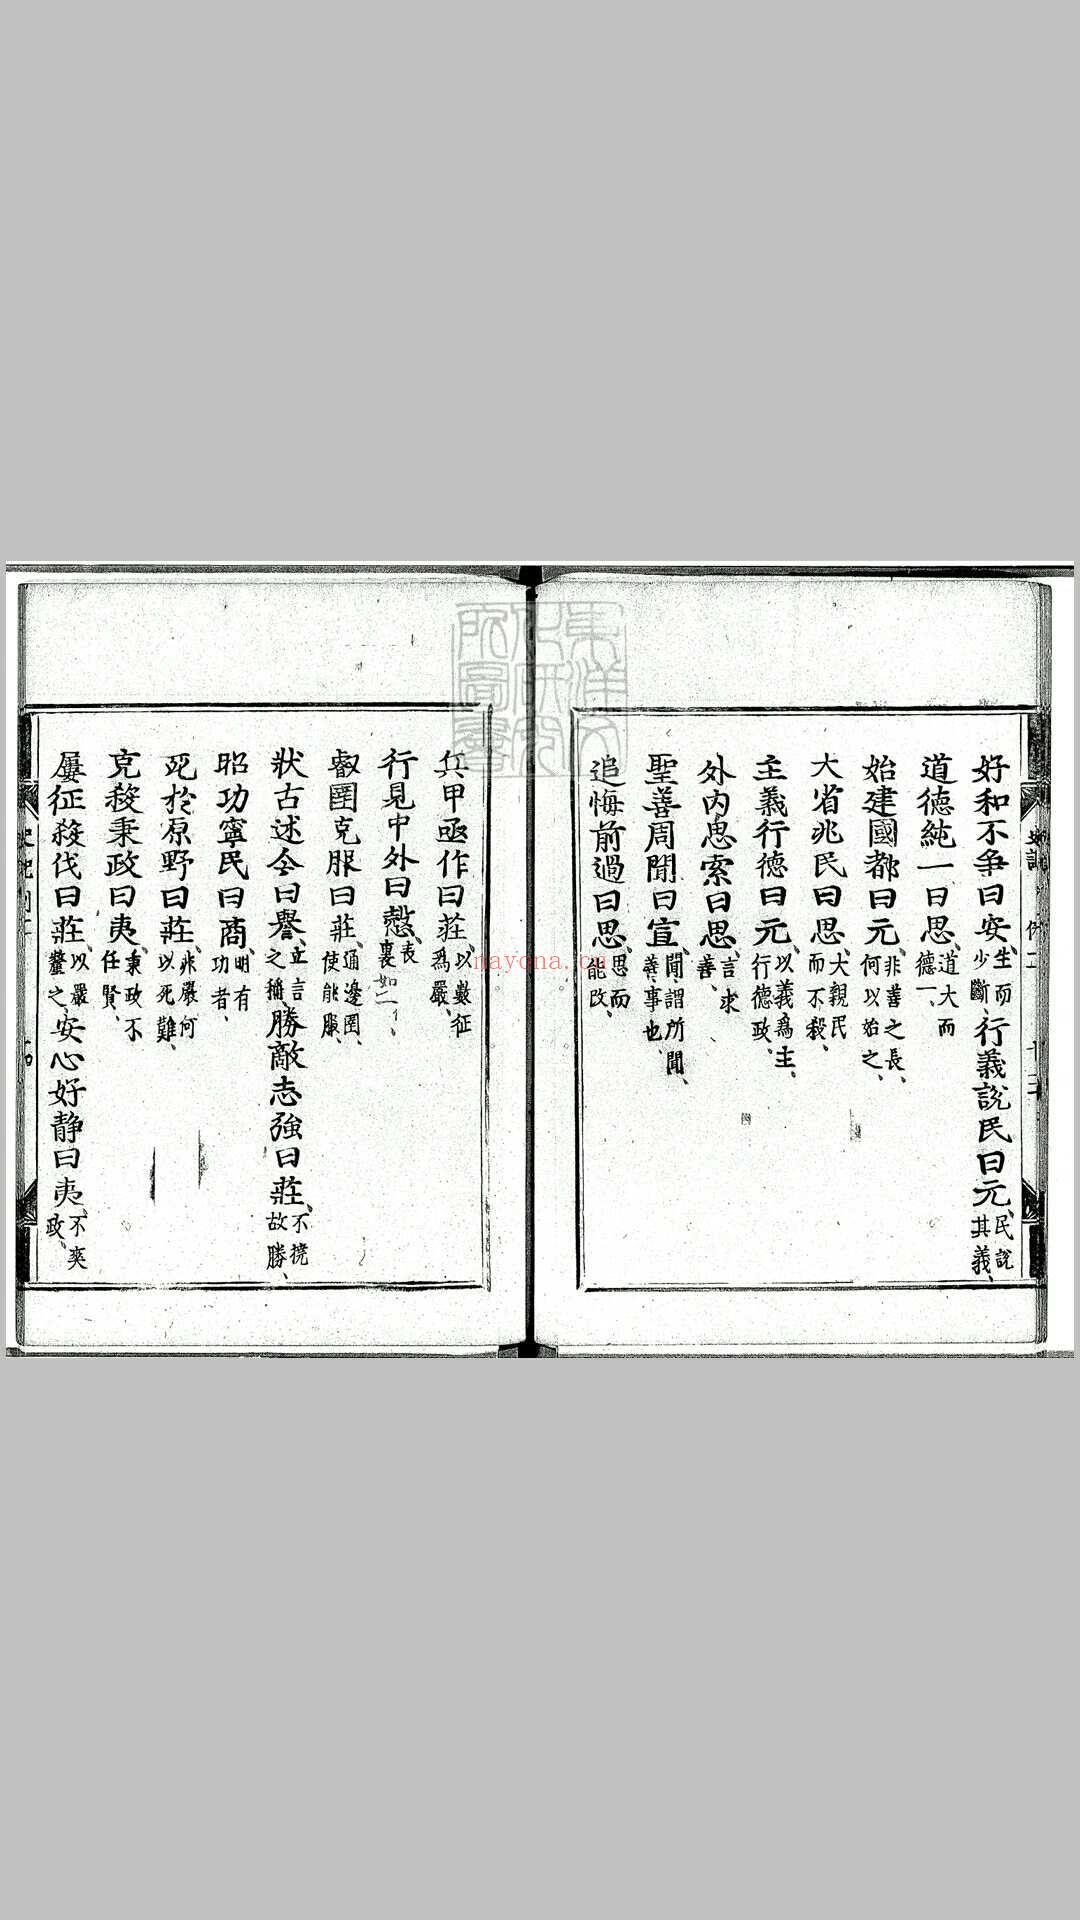 好和不争曰安、生而少斷、行義說民曰元、民說其義、
道德純一曰思、道大而德一、
始建國都曰元、非善之長、何以始之、
大省兆民曰思、大親民而不殺、
主義行德曰元、以義為主、行德政、
外内思索曰思、言求善、
聖善周聞曰宣、聞謂所聞、善事也、
追悔前過曰思、思而能改、
兵甲亟作曰莊、以數征為嚴、
行見中外曰慤、表裏如一、
叡圉克服曰莊、通邊圉、使能服、
狀古述今曰譽、立言之稱、勝敵志強曰莊、不撓故勝、
昭功寧民曰商、明有功者、
死於原野曰莊、非嚴何以死難、
克殺秉政曰夷、秉政不任賢、
屢征殺伐曰莊、以嚴釐之、安心好静曰夷、不爽政、
東洋文化研究所圖書
nayona.cn